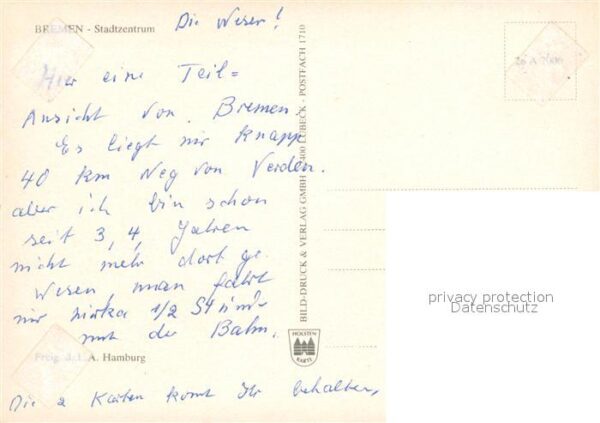 BREMEN - Stadtzentrum
Die Weser!
Hier eine Teil=
Ansicht von Bremen.
Es liegt nir Knapp
40 km Weg von Verden.
aber ich bin schon
seit 3, 4, Jahren
nicht mehr dort ge
wesen man fährt
nir zirka 1/2 Stund
mit der Bahn.
Freig. d. L.A. Hamburg
Die 2 Karten könnt Ihr behalten,
BILD-DRUCK & VERLAG GMBH 2400 LÜBECK - POSTFACH 1710
HOLSTEN
KARTE
privacy protection
Datenschutz